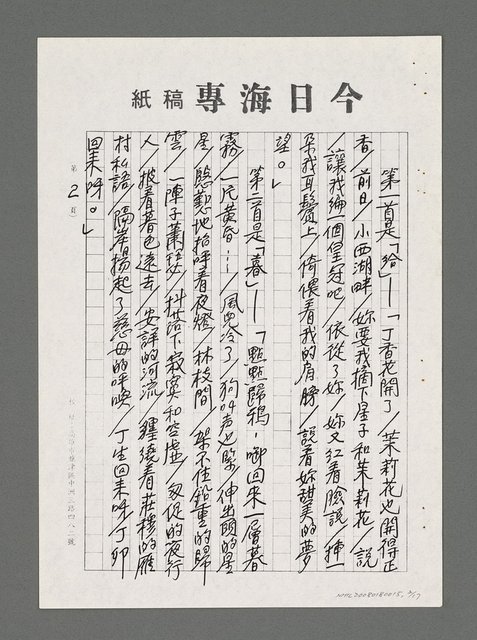 今日海專 稿紙
第一首是「給」—「丁香花開了╱茉莉花也開得正
香╱前日╱小西湖畔╱妳要我摘下星子和茉莉花╱說
╱讓我編一個皇冠吧╱依從了妳╱妳又紅着臉說╱揷一
朶我耳鬢上╱倚偎着我的肩膀╱說着妳甜美的夢
望。」
第二首是「暮」—「點點歸鴉，啣回來一層暮
霧╱一片黃昏…╱風兒冷了╱狗叫声也緊╱伸出頭的星
星╱慇懃地招呼着夜燈╱林枝間╱架不住鉛重的歸
雲╱一陣子蕭瑟╱抖落下寂寞和空虛╱匆促的夜行
人╱披着暮色遠去╱安詳的河流╱纏繞着莊穆的雁
村私語╱隔岸揚起了慈母的呼喚╱丁生回來呀丁卯
回来呀。」
第 2 頁
NMTL20080180015, 3/17